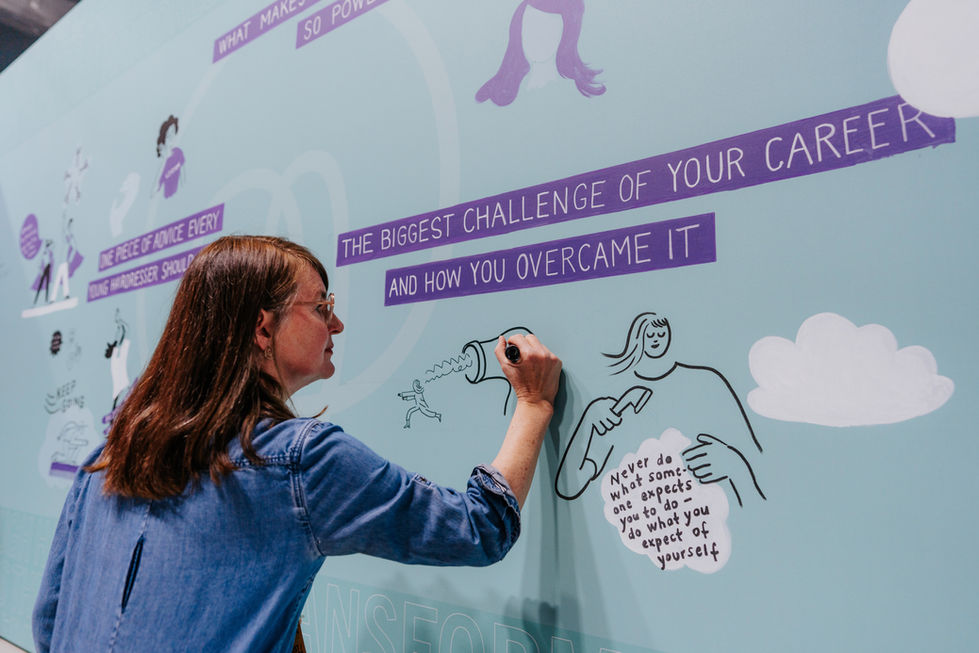 WHAT MAKES
SO POWER
THE BIGGEST CHALLENGE OF YOUR CAREER
AND HOW YOU OVERCAME IT
ONE PIECE OF ADVICE EVERY
YOUNG HAIRDRESSER SHOULD
KEEP
GOING
Never do
what some-
one expects
you to do –
do what you
expect of
yourself
ANSFORM